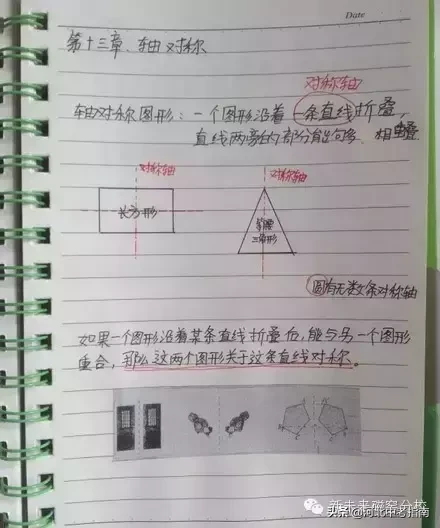 Date
第十三章、轴对称
对称轴
轴对称图形：一个图形沿着一条直线折叠，
直线两旁的部分能够互相重叠
对称轴
对称轴
长方形
等腰
三角形
圆有无数条对称轴
如果一个图形沿着某条直线折叠后，能与另一个图形
重合，那么这两个图形关于这条直线对称。
新未来磁窑分校
头条@河北中考指南